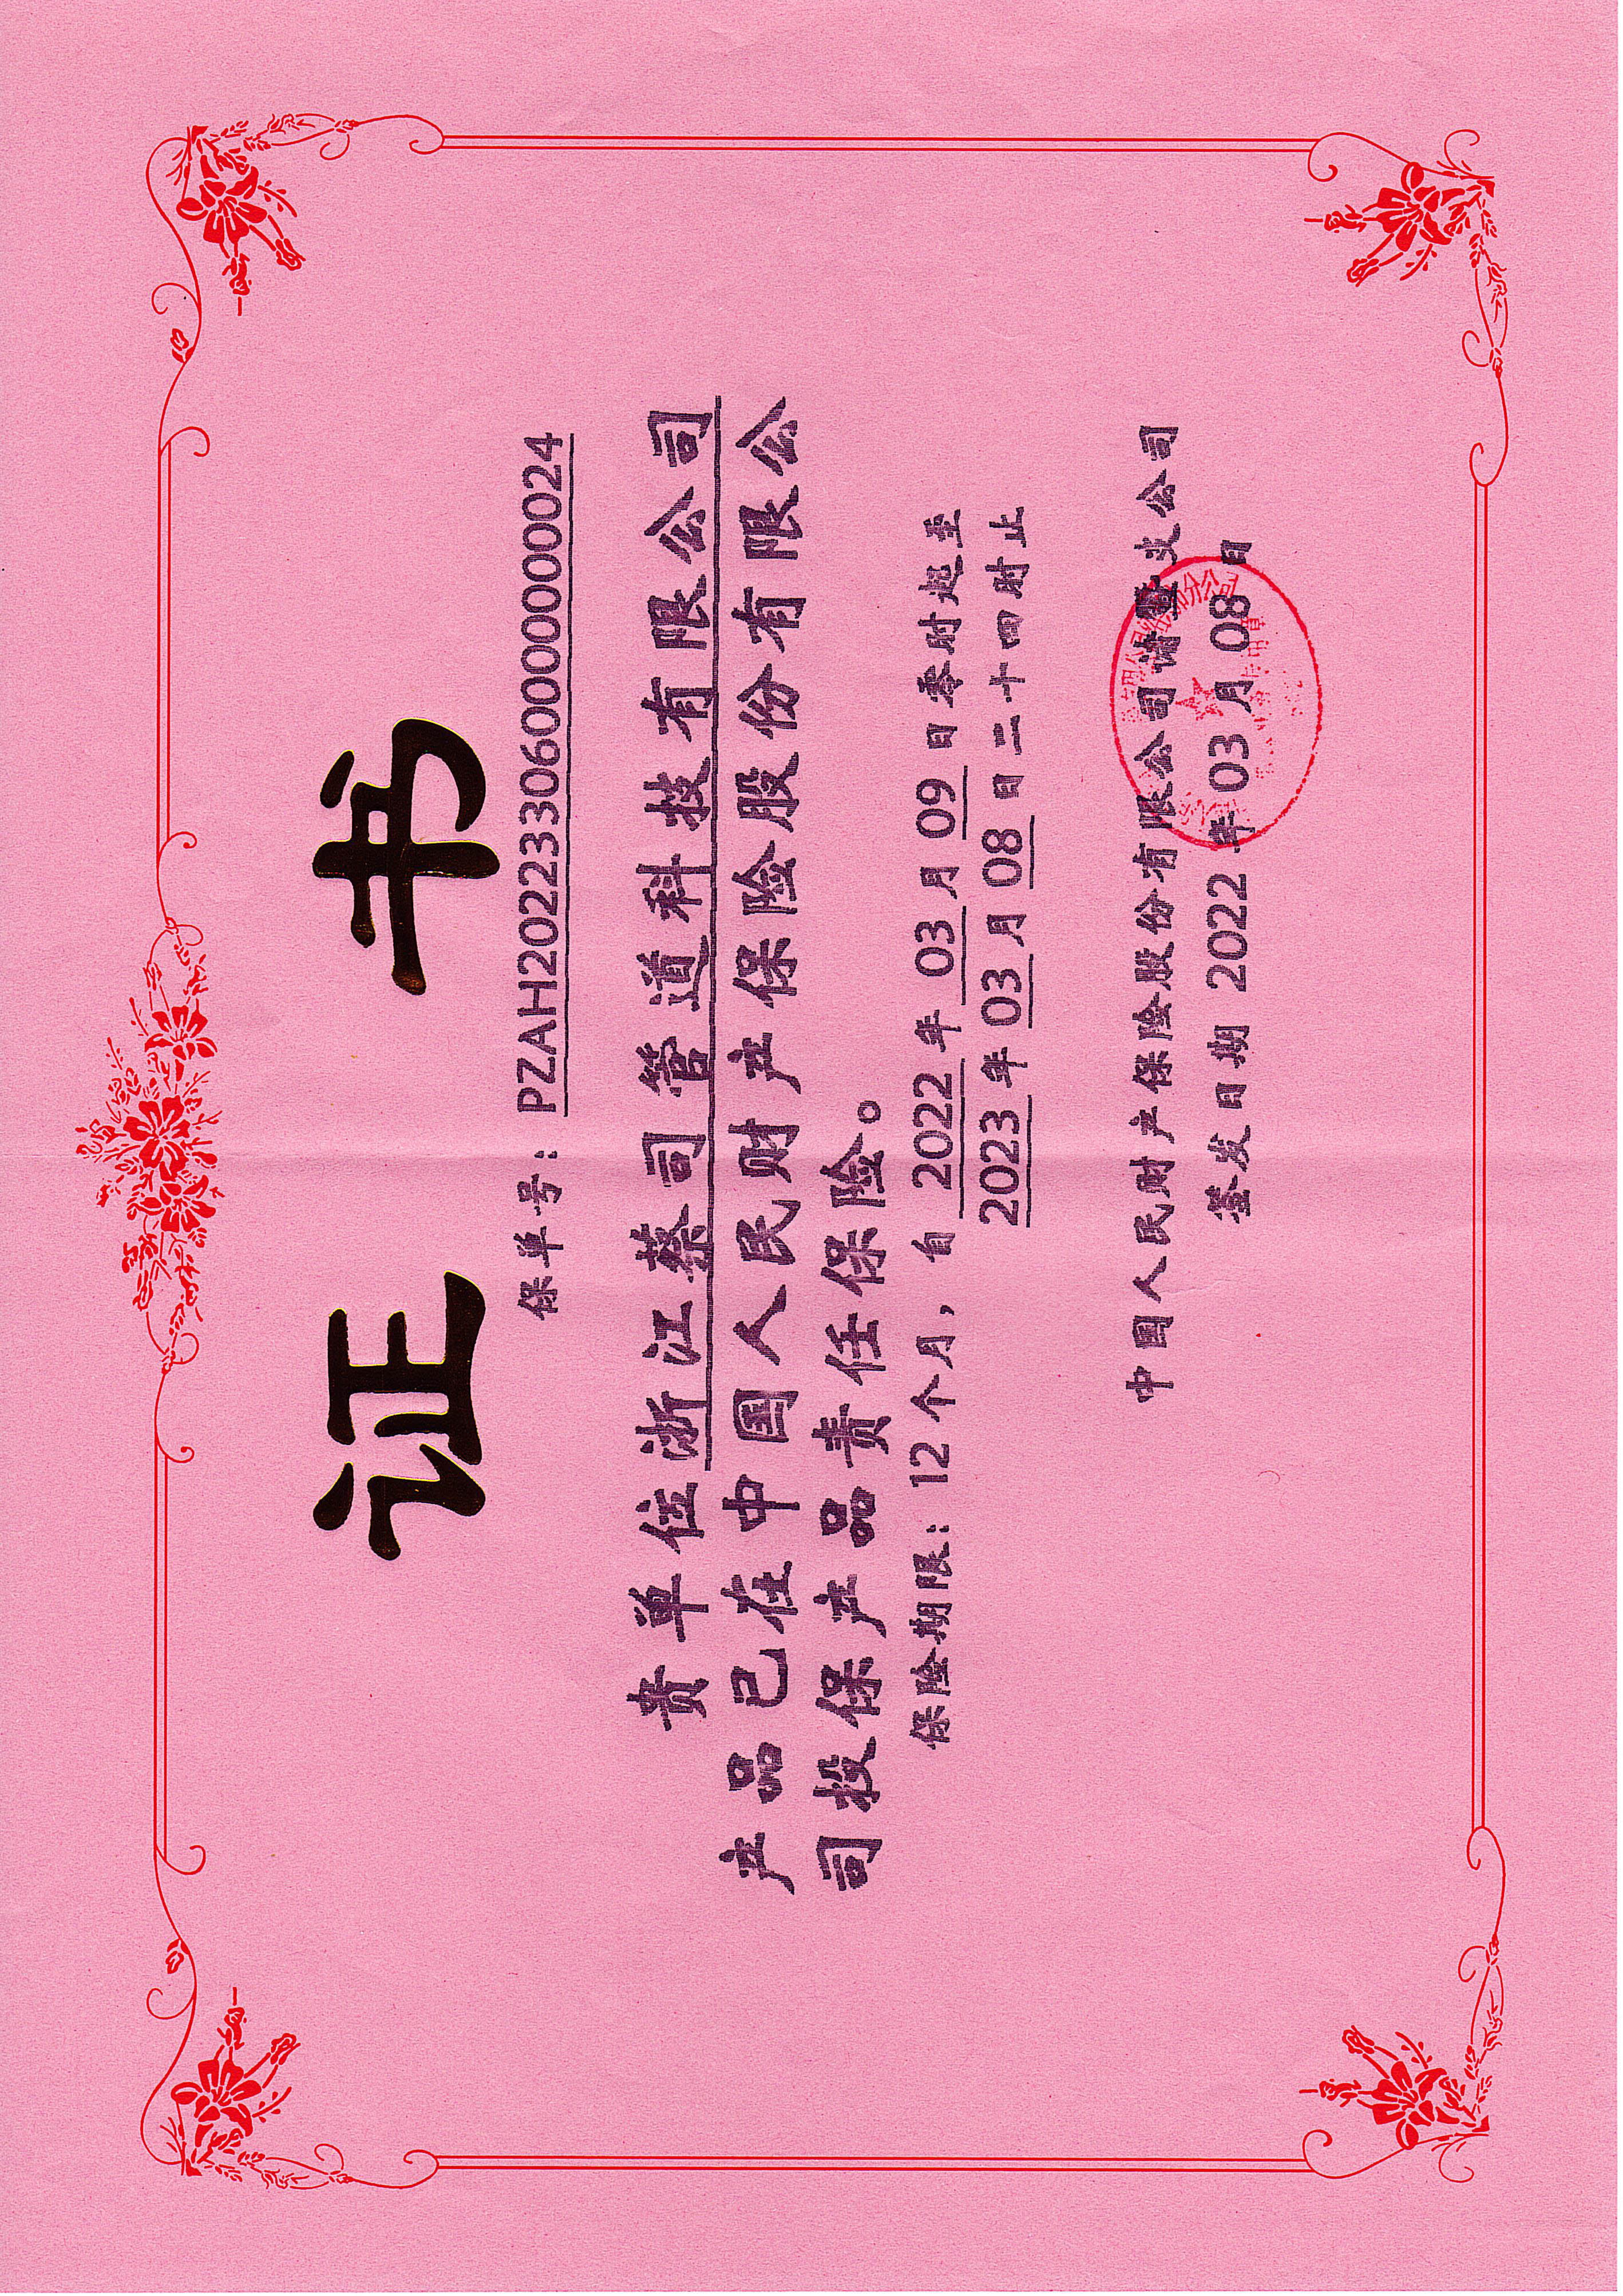 证书
保单号：PZAH202233060000000024
贵单位浙江蔡司管道科技有限公司
产品已在中国人民财产保险股份有限公
司投保产品责任保险。
保险期限：12个月，自 2022 年 03 月 09 日零时起至
2023 年 03 月 08 日二十四时止
中国人民财产保险股份有限公司诸暨支公司
签发日期 2022 年 03 月 08 日